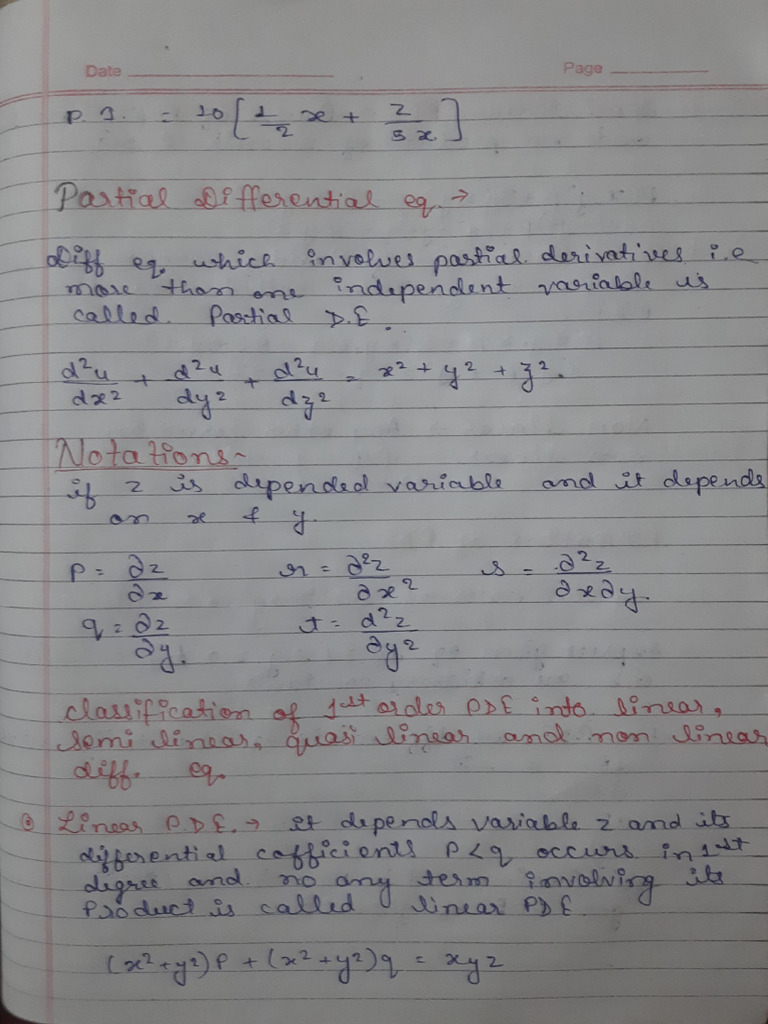 Date
Page
P.I. = 10 [ 1/2 x + 2/5x ]
Partial Differential eq. →
Diff eq. which involves partial derivatives i.e
more than one independent variable is
called Partial D.E.
d²u/dx² + d²u/dy² + d²u/dz² = x² + y² + z².
Notations ~
if z is depended variable and it depends
on x & y.
P = ∂z/∂x r = ∂²z/∂x² s = ∂²z/∂x∂y.
q = ∂z/∂y. t = d²z/∂y²
Classification of 1st order PDE into linear,
semi linear, quasi linear and non linear
diff. eq.
Linear P.D.E. → it depends variable z and its
differential cofficients P < q occurs in 1st
degree and no any term involving its
Product is called linear PDE.
(x²+y²)P + (x²+y²)q = xyz